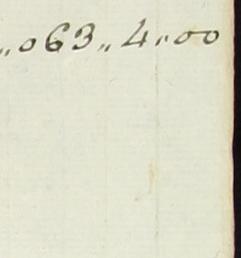 „063„4„00